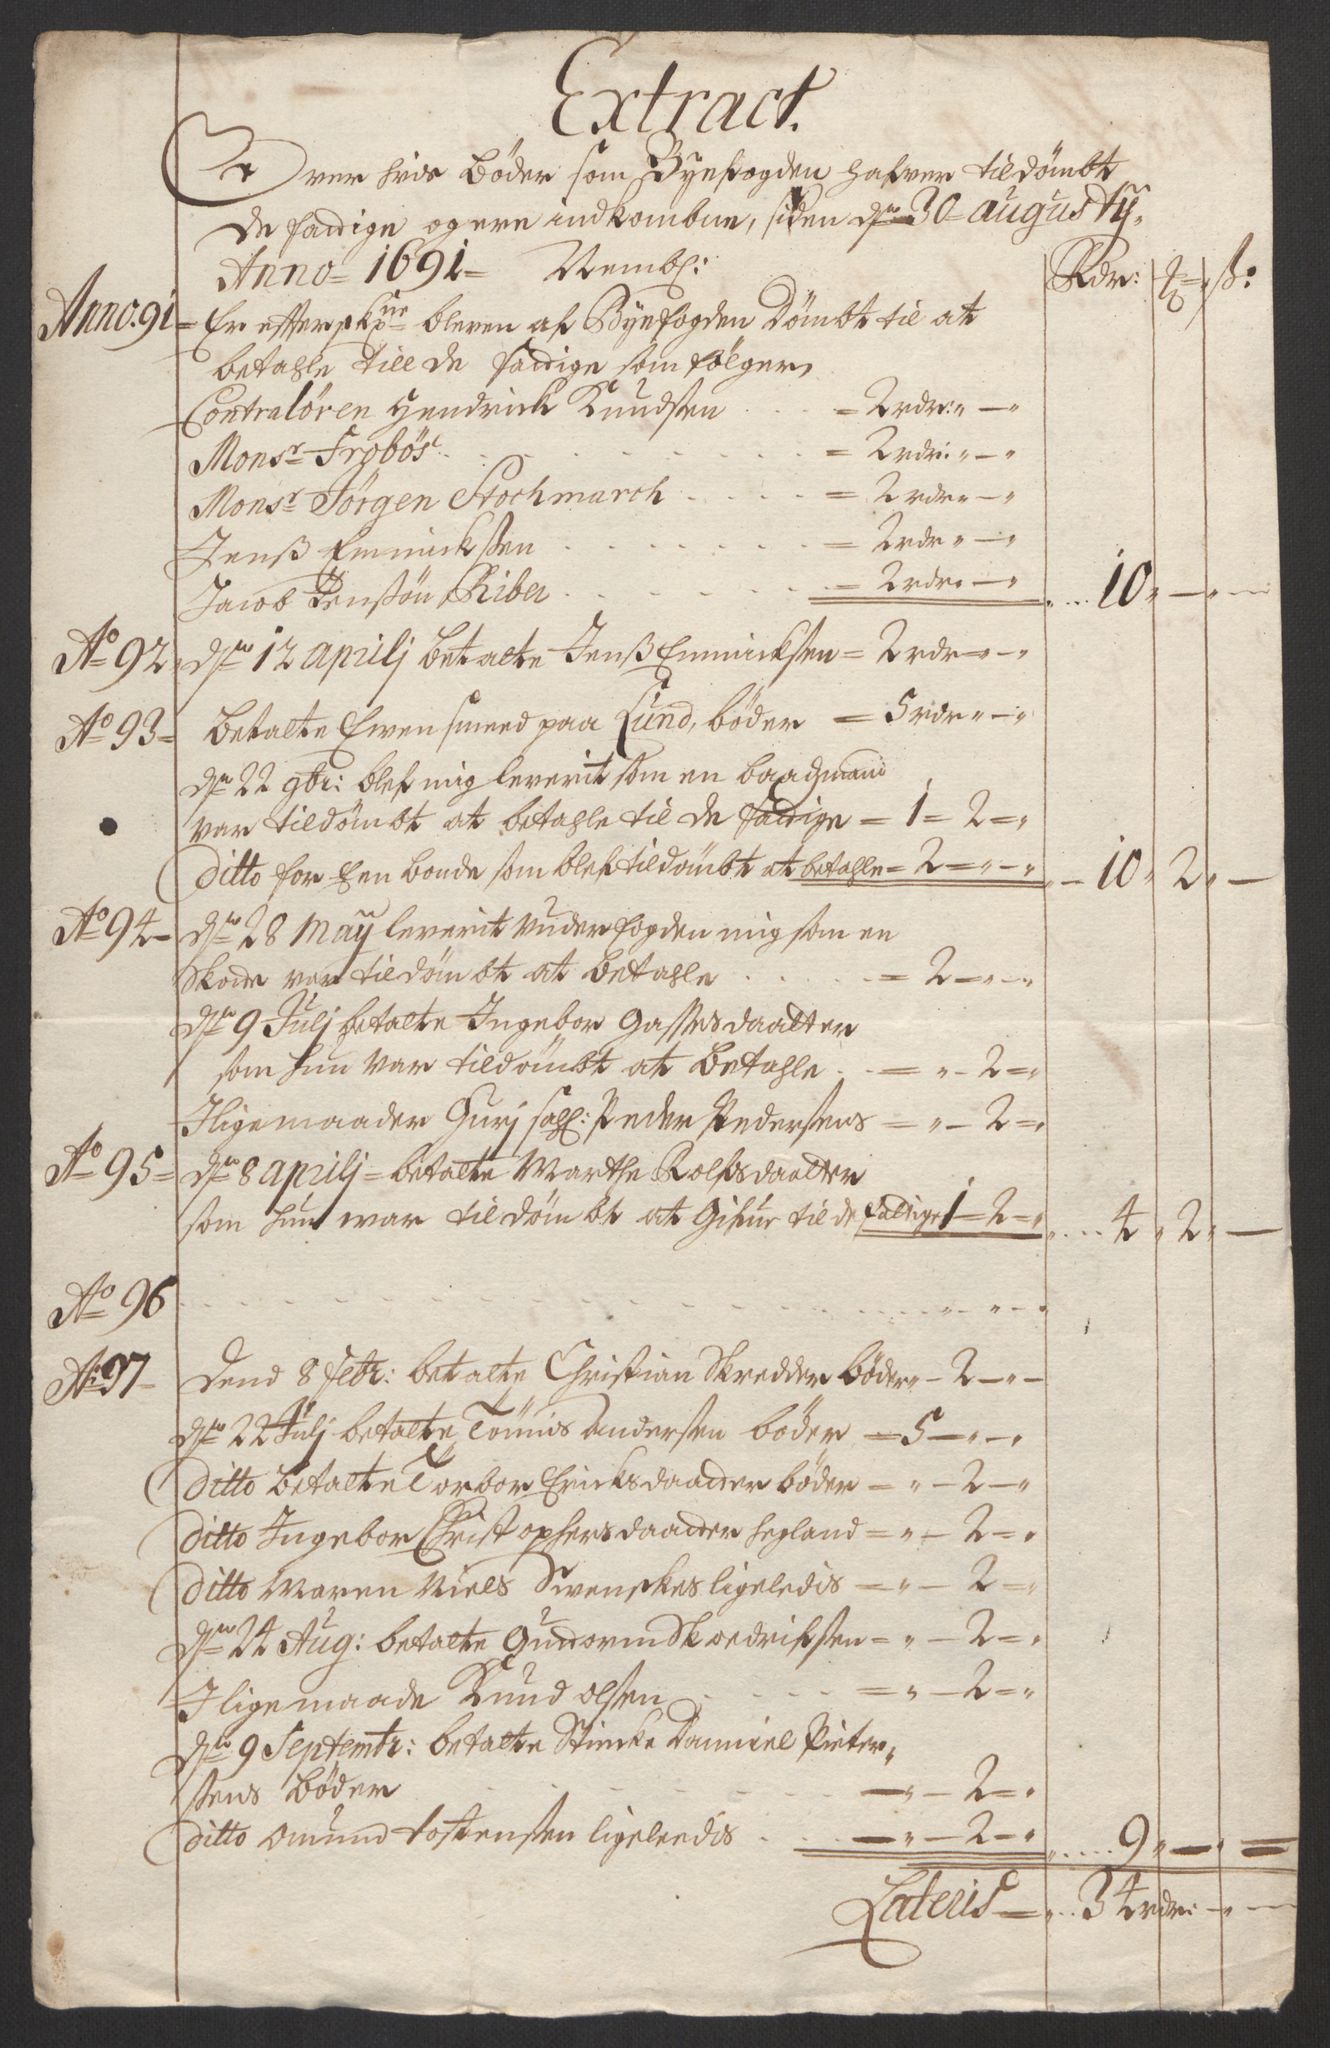 Extract.
Over hvis bøder som Byefogden hafver tildømbt
de fattige og ere indkombne, siden dn 30 augustij
Anno 1691 Nembl:
Rdr: ß:
Anno. 91 = Er effter bleven af Byefogden Dømbt til at
betahle till de fattige som følger,
Contraløren Hendrick Knudsen = 2 rdr: „ — „
Monsr Frobøs = 2 rdr: „ — „
Monsr Jørgen Stochmarch = 2 rdr „ — „
Jenß Emmicksen = 2 rdr „ — „
Jacob Jenßøn Riber = 2 rdr „ — „ 10 „ — „ —
Ao 92 dn 12 aprilj betalte Jenß Emmicksen = 2 rdr „ — „
Ao 93 = betalte Ewen smeed paa Lund, bøder = 5 rdr „ — „
dn 22 9br: blef mig leverit som en baadzmand
var tildømbt at betahle til de fattige = 1 = 2 = „
Ditto for Een bonde som blef tildømbt at betahle = 2 = „ — „ 10 „ 2 „ —
Ao 94 dn 28 Maij leverit underfogden mig som en
var tildømbt at betahle = 2 — „ — „
dn 9 Julj betalte Ingebor Gassesdaatter
som hun var tildømbt at betahle = „ — 2 = „
Iligemaader Gurj sahl: Peder Pedersens = „ — 2 = „
Ao 95 = dn 8 aprilj = betalte Marthe Rolfsdaatter
som hun war tildømbt at Gifue til de fattige 1 = 2 = „ 4 „ 2 „ —
Ao 96 „ — „ — „
Ao 97 Dend 8 Febr: betalte Christian Skredder bøder „ — 2 — „ —
dn 22 Julj betalte Tönnis Andersen bøder = 5 — „ — „
Ditto betalte Torbor Ericksdaatter bøder = „ — 2 — „
Ditto Ingebor Christophersdaatter Hegland = „ — 2 = „
Ditto Maren Niels Swenskes ligeledis = „ — 2 = „
dn 24 Aug: betalte Gundorm = „ — 2 = „
Iligemaade Knud olsen = „ — 2 = „
dn 9 Septembr: betalte Stincke Danniel Pieter„
sens bøder — „ — 2 = „
Ditto Omund tostensen ligeledis — „ — 2 — „ 9 „ — „ =
Lateris = „ 34 rdr: — „ —